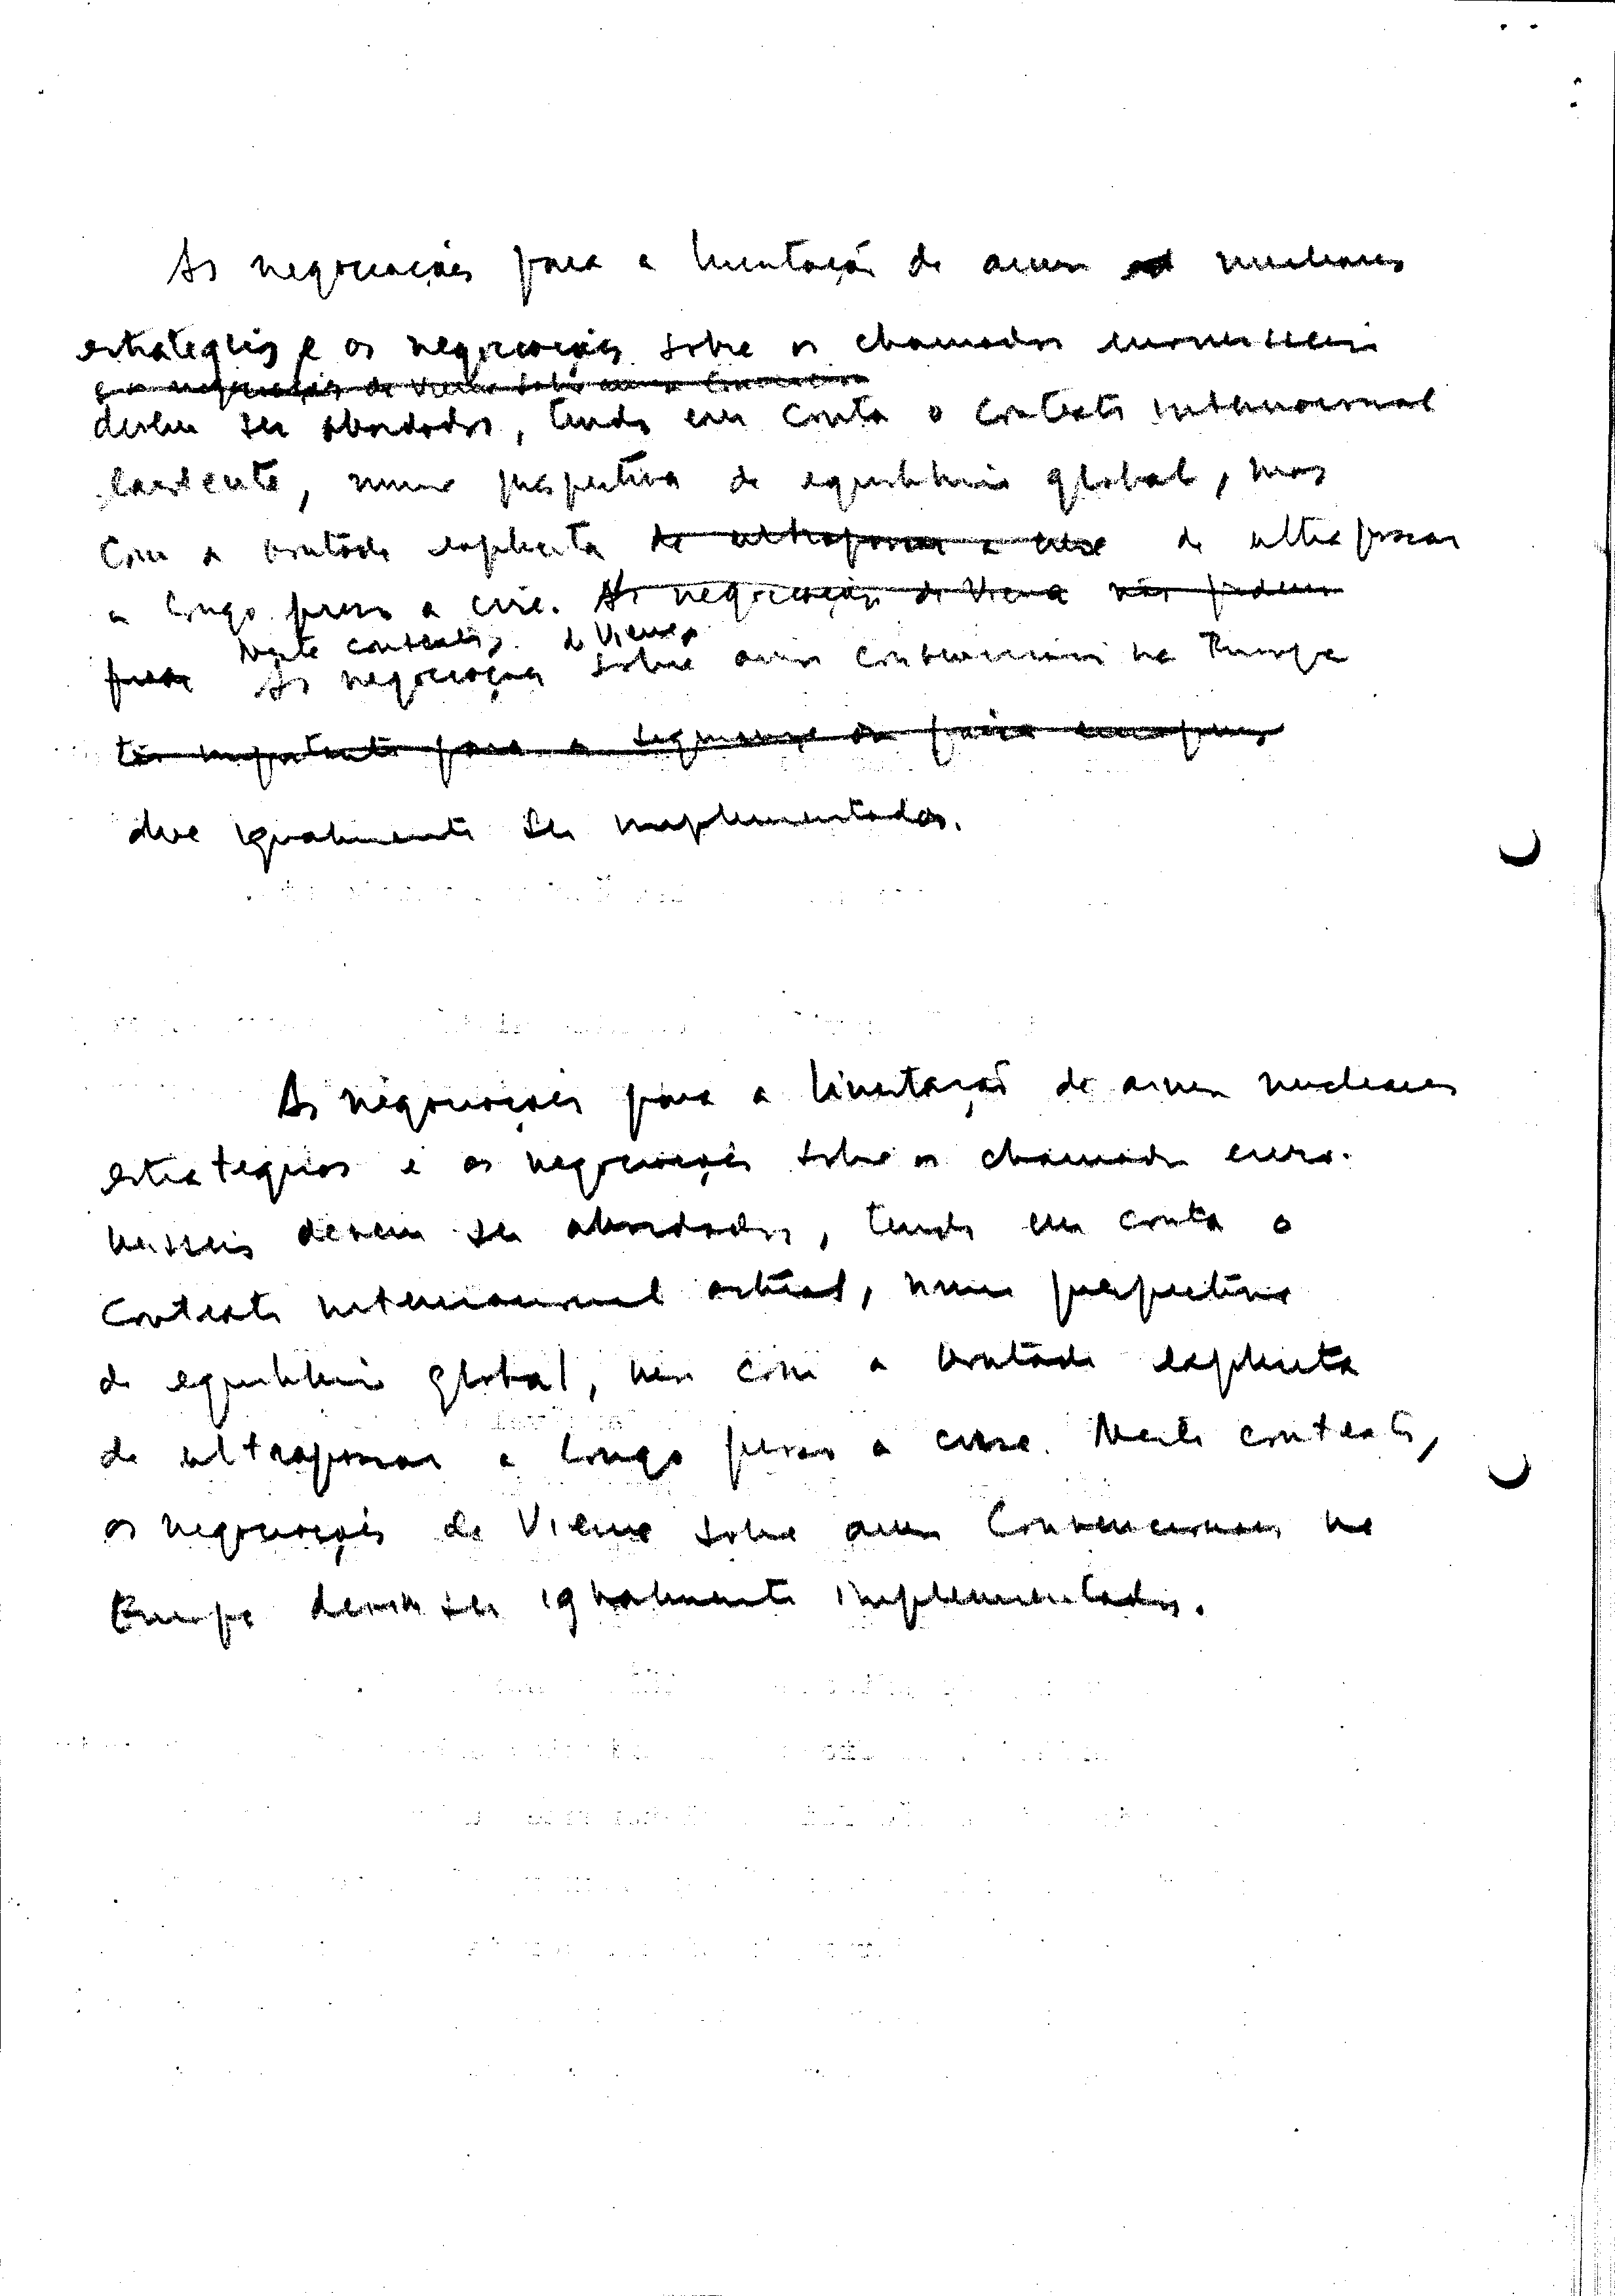 As negociações para a limitação de armas nucleares
estratégicas e as negociações sobre os chamados euromísseis
e as negociações de Viena sobre armas convencionais
devem ser abordados, tendo em conta o contexto internacional
existente, numa perspectiva de equilíbrio global, mas
com a vontade explicita de ultrapassar a crise de ultrapassar
a longo prazo a crise. As negociações de Viena não podem
Neste contexto, de Viena
As negociações sobre armas convencionais na Europa
tão importante para a segurança dos países europeus,
deve igualmente ser implementadas.
As negociações para a limitação de armas nucleares
estratégicas e as negociações sobre os chamados euro-
mísseis devem ser abordados, tendo em conta o
contexto internacional actual, numa perspectiva
de equilíbrio global, mas com a vontade explicita
de ultrapassar a longo prazo a crise. Neste contexto,
as negociações de Viena sobre armas convencionais na
Europa devem ser igualmente implementadas.